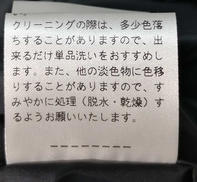 クリーニングの際は、多少色落
ちすることがありますので、出
来るだけ単品洗いをおすすめし
ます。また、他の淡色物に色移
りすることがありますので、す
みやかに処理（脱水・乾燥）す
るようお願いいたします。